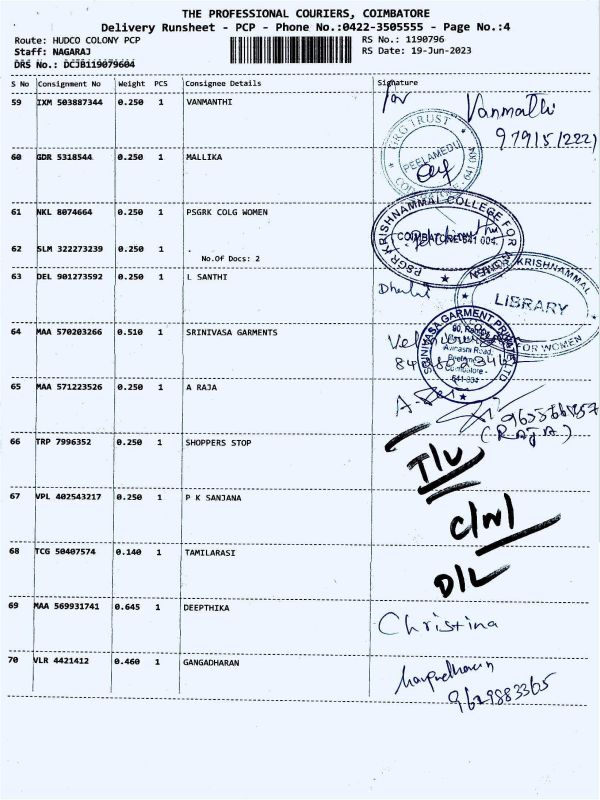 THE PROFESSIONAL COURIERS, COIMBATORE
Delivery Runsheet - PCP - Phone No.:0422-3505555 - Page No.:4
Route: HUDCO COLONY PCP RS No.: 1190796
Staff: NAGARAJ RS Date: 19-Jun-2023
DRS No.: DCJB119079604
S No Consignment No Weight PCS Consignee Details Signature
59 IXM 503887344 0.250 1 VANMANTHI for Vanmathi
60 GDR 5318544 0.250 1 MALLIKA
GRG TRUST
PEELAMEDU
641 004
61 NKL 8074664 0.250 1 PSGRK COLG WOMEN
PSGR KRISHNAMMAL COLLEGE FOR WOMEN
COIMBATORE 641 004.
62 SLM 322273239 0.250 1 .
No.Of Docs: 2
63 DEL 901273592 0.250 1 L SANTHI
KRISHNAMMAL
LIBRARY
FOR WOMEN
64 MAA 570203266 0.510 1 SRINIVASA GARMENTS
SRINIVASA GARMENT PRIVATE LTD
Avinashi Road,
Coimbatore -
65 MAA 571223526 0.250 1 A RAJA
(RAJA)
66 TRP 7996352 0.250 1 SHOPPERS STOP
67 VPL 402543217 0.250 1 P K SANJANA
68 TCG 50407574 0.140 1 TAMILARASI
D/L
69 MAA 569931741 0.645 1 DEEPTHIKA Christina
70 VLR 4421412 0.460 1 GANGADHARAN
9629883365